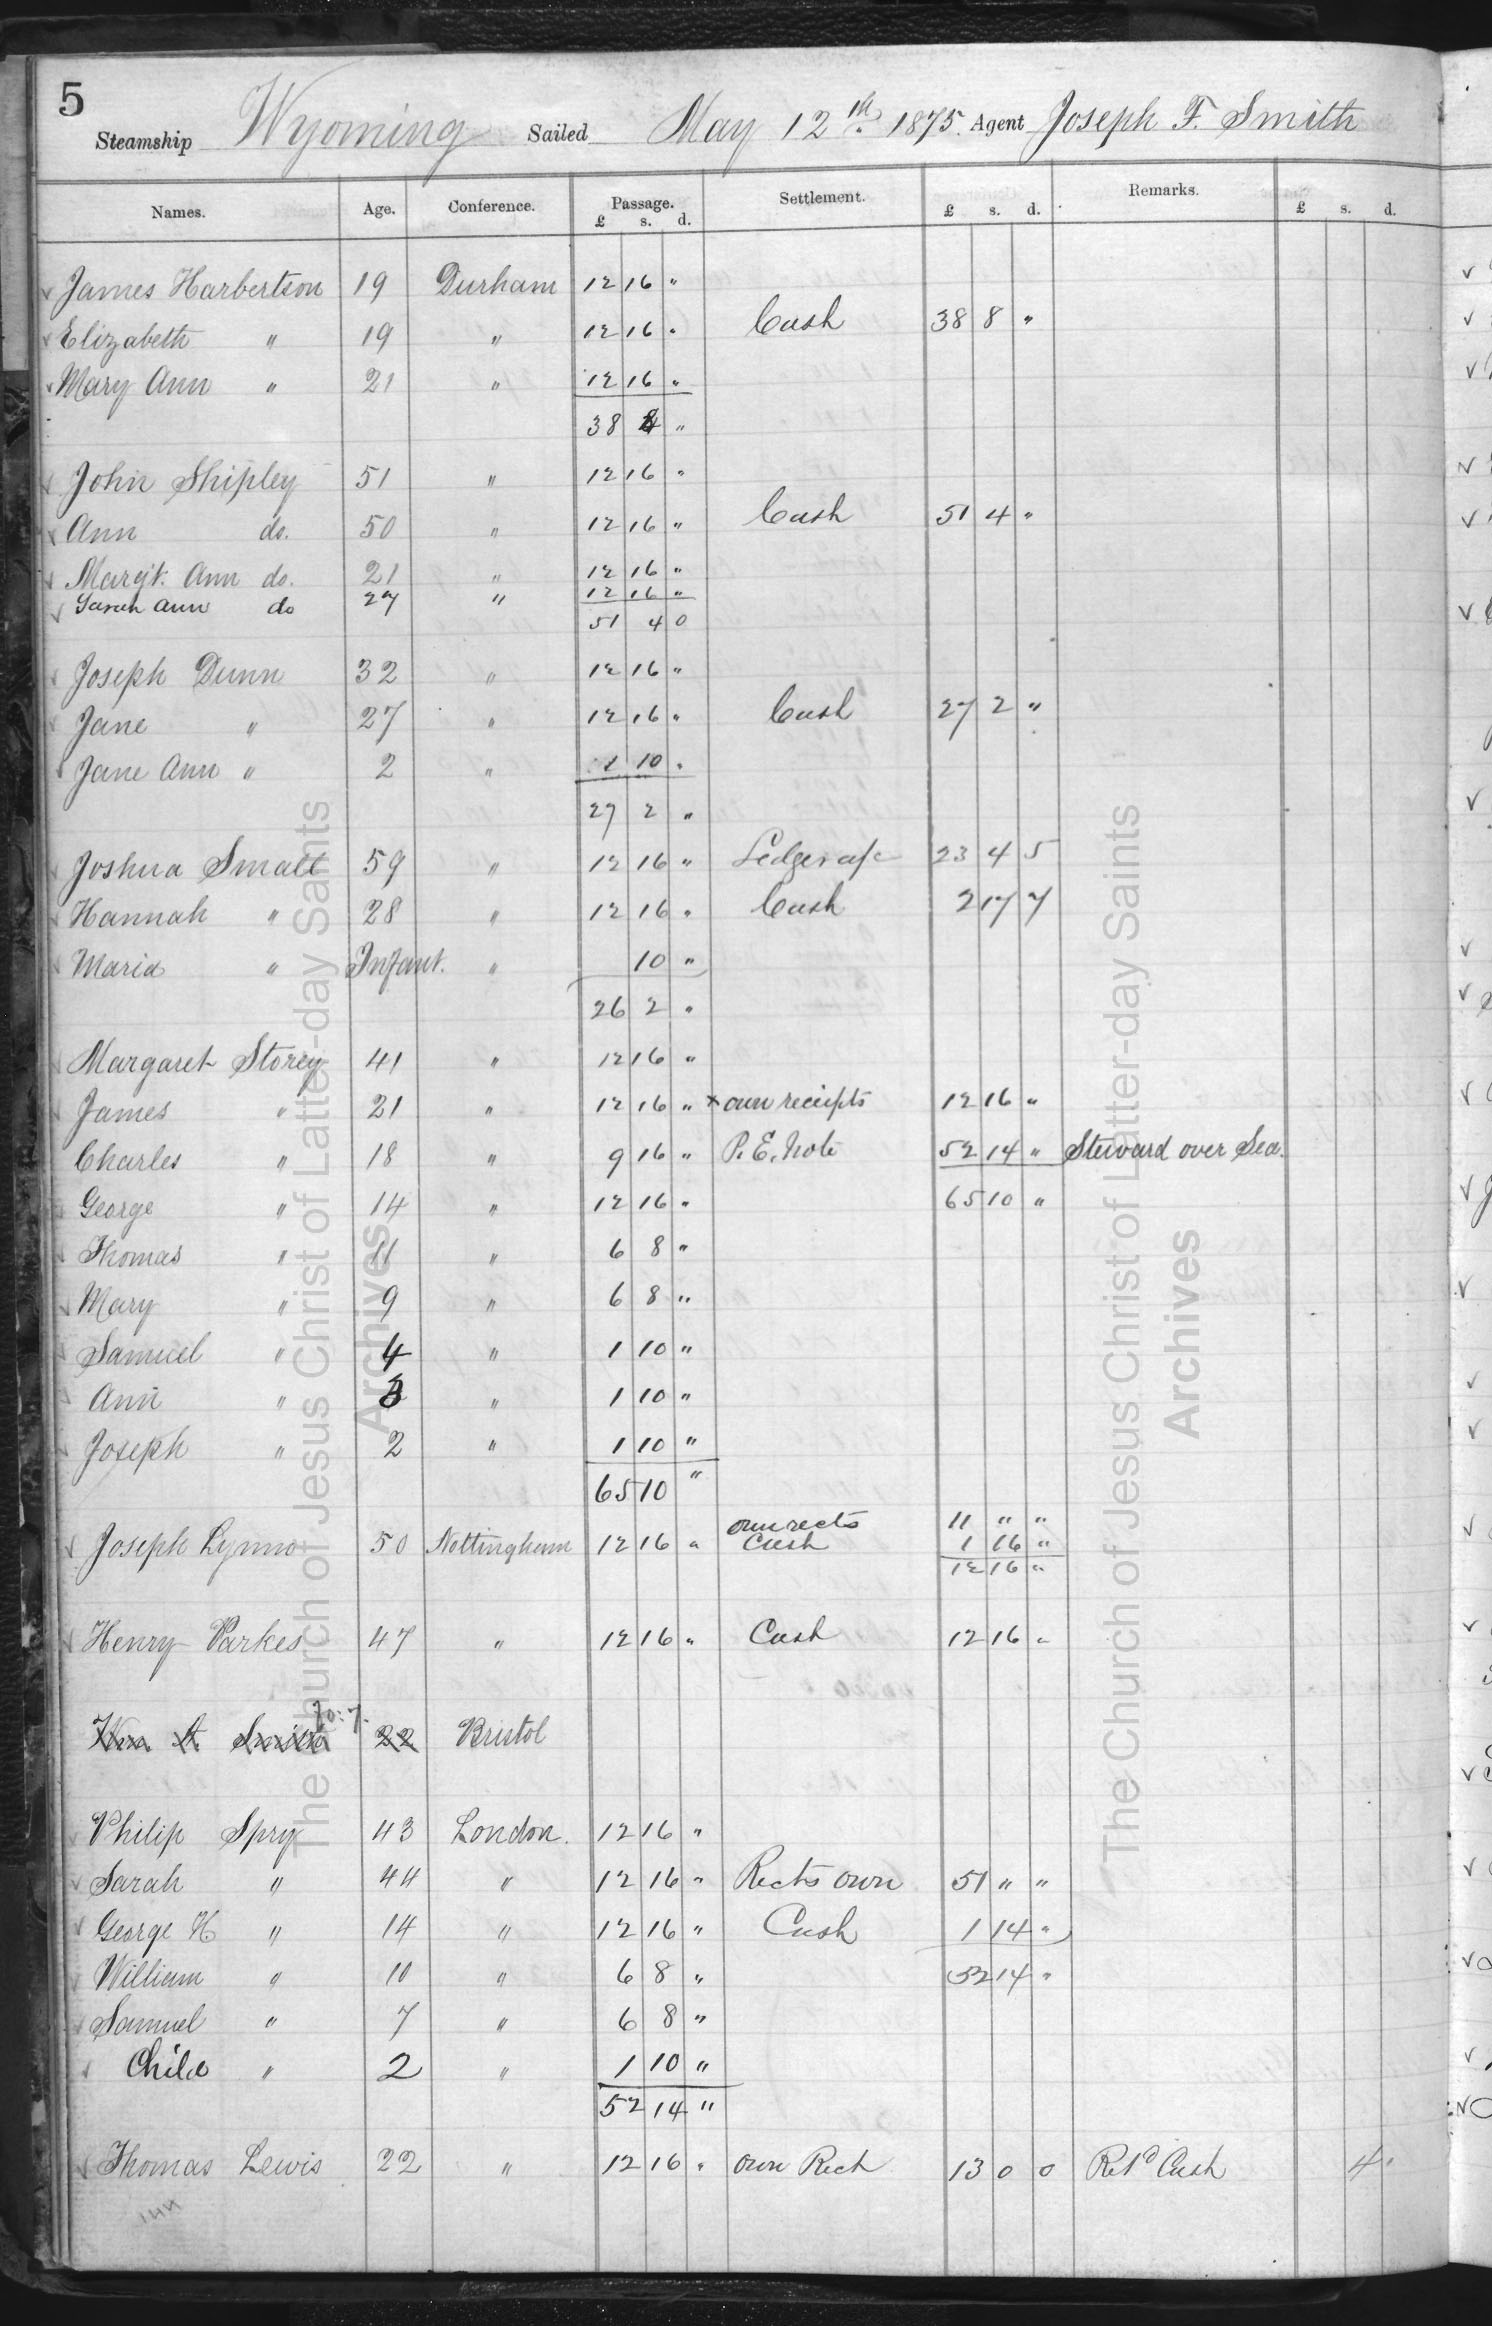 5
Steamship Wyoming Sailed May 12th 1875. Agent Joseph F. Smith
Names. Age. Conference. Passage. £ s. d. Settlement. £ s. d. Remarks. £ s. d.
James Harbertson 19 Durham 12 16 "
Cash 38 8 "
Elizabeth " 19 " 12 16 "
Mary Ann " 21 " 12 16 "
38 8 "
John Shipley 51 " 12 16 "
Ann do. 50 " 12 16 " Cash 51 4 "
Margt. Ann do. 21 " 12 16 "
Sarah Ann do 27 " 12 16 "
51 4 0
Joseph Dunn 32 " 12 16 "
Jane " 27 " 12 16 " Cash 27 2 "
Jane Ann " 2 " 1 10 "
27 2 "
Joshua Small 59 " 12 16 " Ledger a/c 23 4 5
Hannah " 28 " 12 16 " Cash 2 17 7
Maria " Infant. " 10 "
26 2 "
Margaret Storey 41 " 12 16 "
James " 21 " 12 16 " x own receipts 12 16 "
Charles " 18 " 9 16 " P. E. Note 52 14 " Steward over Sea.
George " 14 " 12 16 " 65 10 "
Thomas " 11 " 6 8 "
Mary " 9 " 6 8 "
Samuel " 4 " 1 10 "
Ann " 3 " 1 10 "
Joseph " 2 " 1 10 "
65 10 "
own rects 11 " "
Joseph Lynno 50 Nottingham 12 16 " Cash 1 16 "
12 16 "
Henry Parkes 47 " 12 16 " Cash 12 16 "
Wm. A. Smith 22 Bristol
Philip Spry 43 London. 12 16 "
Sarah " 44 " 12 16 " Rects own 51 " "
George H " 14 " 12 16 " Cash 1 14 "
William " 10 " 6 8 " 52 14 "
Samuel " 7 " 6 8 "
Child " 2 " 1 10 "
52 14 "
Thomas Lewis 22 " 12 16 " own Rect 13 0 0 Retd Cash 4 "
144
The Church of Jesus Christ of Latter-day Saints
Archives
The Church of Jesus Christ of Latter-day Saints
Archives